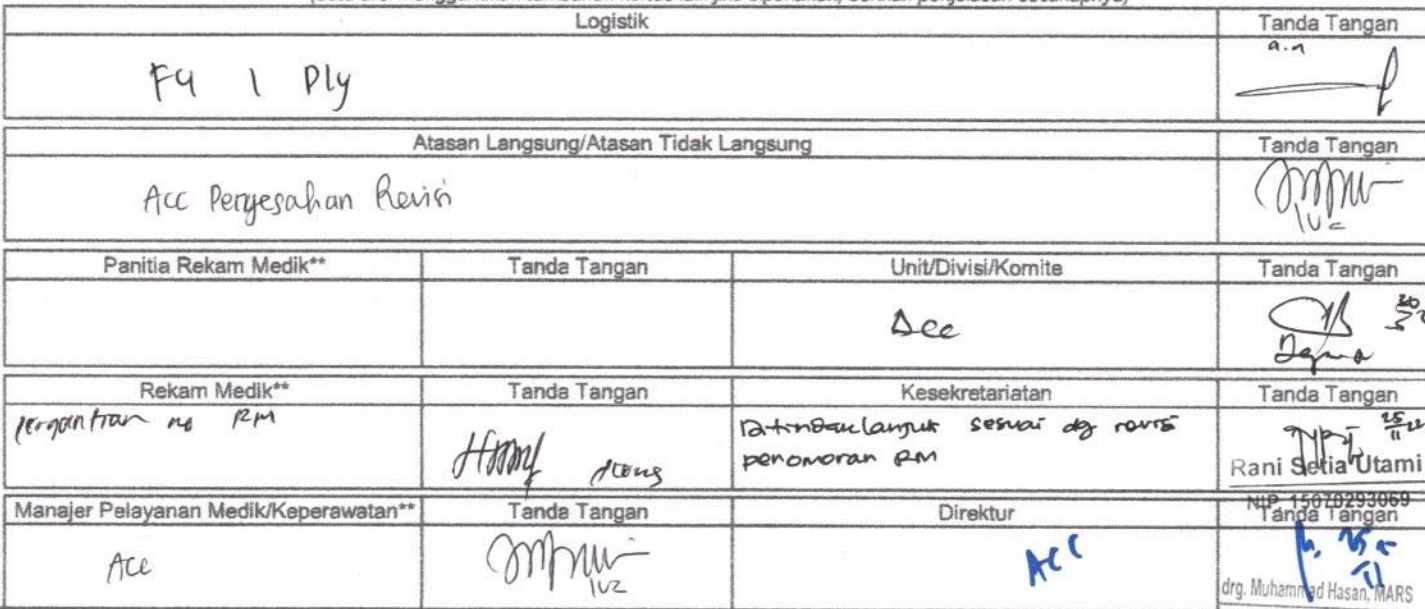 Logistik Tanda Tangan
F4 1 Ply a.n
Atasan Langsung/Atasan Tidak Langsung Tanda Tangan
Acc Pengesahan Revisi
Panitia Rekam Medik** Tanda Tangan Unit/Divisi/Komite Tanda Tangan
Acc
Rekam Medik** Tanda Tangan Kesekretariatan Tanda Tangan
pergantian no RM
Ditindaklanjut sesuai dg revisi
penomoran RM
25/11 22
Rani Setia Utami
NIP 15070293069
Manajer Pelayanan Medik/Keperawatan** Tanda Tangan Direktur Tanda Tangan
Acc ACC
drg. Muhammad Hasan, MARS